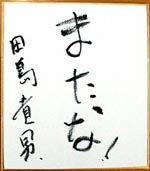 まただな!
田島貴男